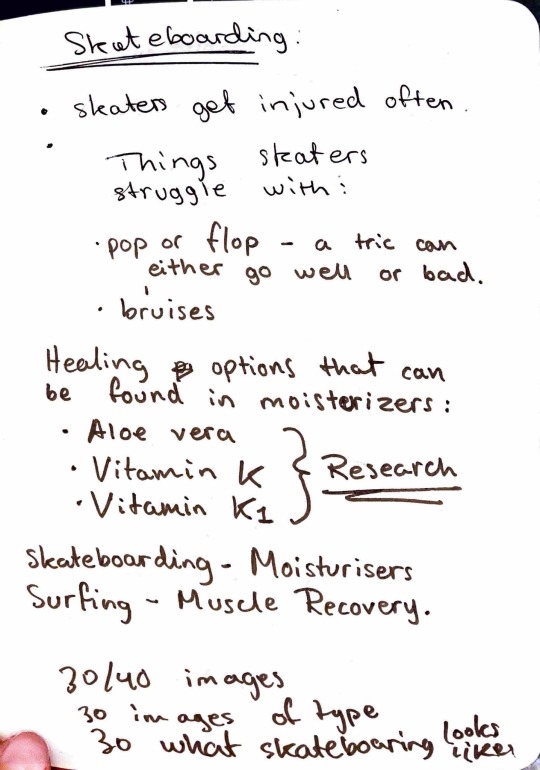 Skateboarding:
• skaters get injured often.
•
Things skaters
struggle with:
• pop or flop - a tric can
either go well or bad.
• bruises
Healing options that can
be found in moisterizers:
• Aloe vera
• Vitamin K
• Vitamin K1
} Research
Skateboarding - Moisturisers
Surfing - Muscle Recovery.
30/40 images
30 images of type
30 what skateboaring looks
like